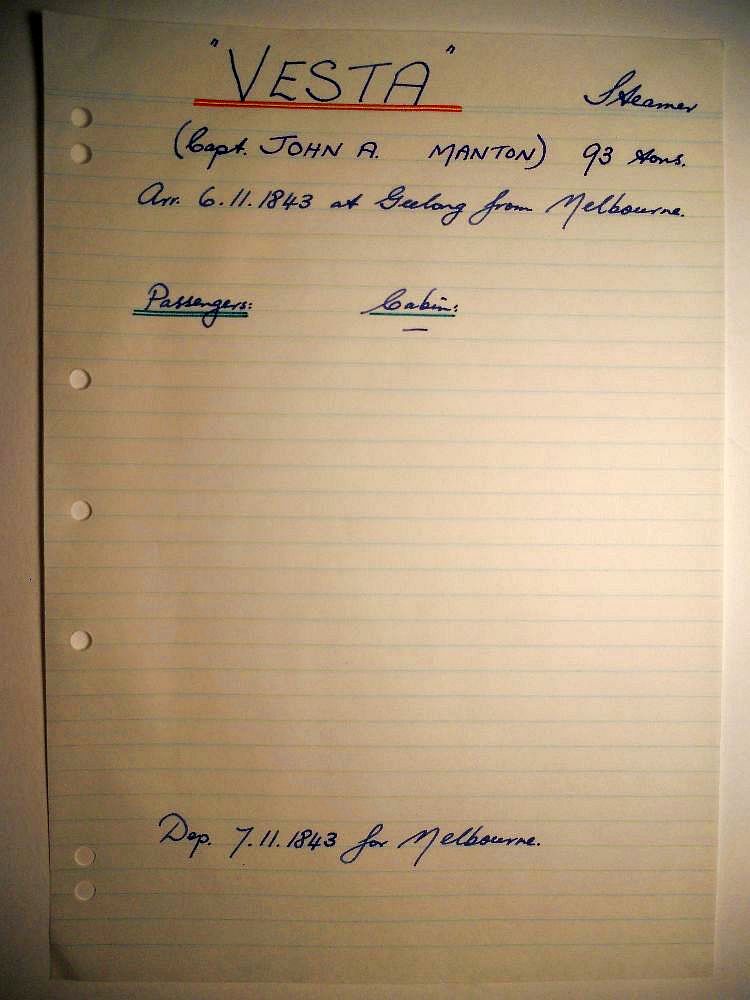 "VESTA" Steamer
(Capt. JOHN A. MANTON) 93 tons.
Arr. 6.11.1843 at Geelong from Melbourne.
Passengers: Cabin:
—
Dep. 7.11.1843 for Melbourne.